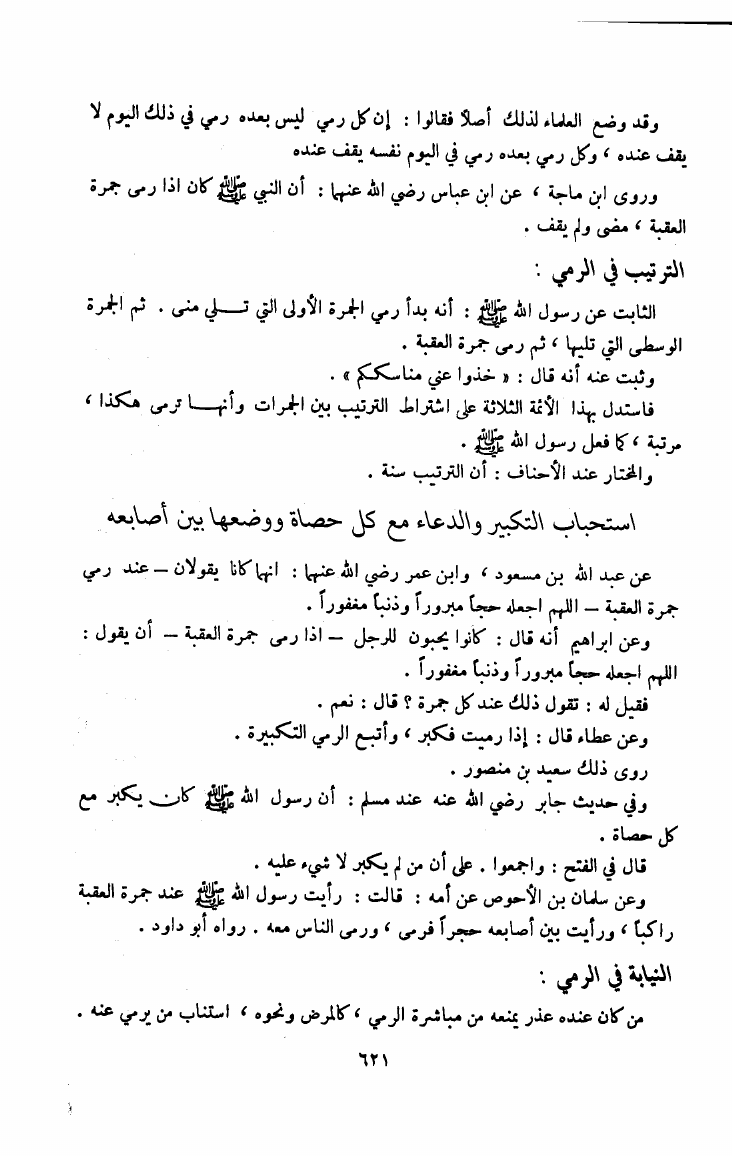 وقد وضع العلماء لذلك أصلاً فقالوا : إن كل رمي ليس بعده رمي في ذلك اليوم لا
يقف عنده ، وكل رمي بعده رمي في اليوم نفسه يقف عنده
وروى ابن ماجة ، عن ابن عباس رضي الله عنهما : أن النبي ﷺ كان اذا رمى جمرة
العقبة ، مضى ولم يقف .
الترتيب في الرمي :
الثابت عن رسول الله ﷺ : أنه بدأ رمي الجمرة الأولى التي تلي منى . ثم الجمرة
الوسطى التي تليها ، ثم رمى جمرة العقبة .
وثبت عنه أنه قال : « خذوا عني مناسككم » .
فاستدل بهذا الأئمة الثلاثة على اشتراط الترتيب بين الجمرات وأنها ترمى هكذا ،
مرتبة ، كما فعل رسول الله ﷺ .
والمختار عند الأحناف : أن الترتيب سنة .
استحباب التكبير والدعاء مع كل حصاة ووضعها بين أصابعه
عن عبد الله بن مسعود ، وابن عمر رضي الله عنهما : انهما كانا يقولان – عند رمي
جمرة العقبة – اللهم اجعله حجاً مبروراً وذنباً مغفوراً .
وعن ابراهيم أنه قال : كانوا يحبون للرجل – اذا رمى جمرة العقبة – أن يقول :
اللهم اجعله حجاً مبروراً وذنباً مغفوراً .
فقيل له : تقول ذلك عند كل جمرة ؟ قال : نعم .
وعن عطاء قال : إذا رميت فكبر ، وأتبع الرمي التكبيرة .
روى ذلك سعيد بن منصور .
وفي حديث جابر رضي الله عنه عند مسلم : أن رسول الله ﷺ كان يكبر مع
كل حصاة .
قال في الفتح : واجمعوا . على أن من لم يكبر لا شيء عليه .
وعن سلمان بن الأحوص عن أمه : قالت : رأيت رسول الله ﷺ عند جمرة العقبة
راكباً ، ورأيت بين أصابعه حجراً فرمى ، ورمى الناس معه . رواه أبو داود .
النيابة في الرمي :
من كان عنده عذر يمنعه من مباشرة الرمي ، كالمرض ونحوه ، استناب من يرمي عنه .
٦٢١